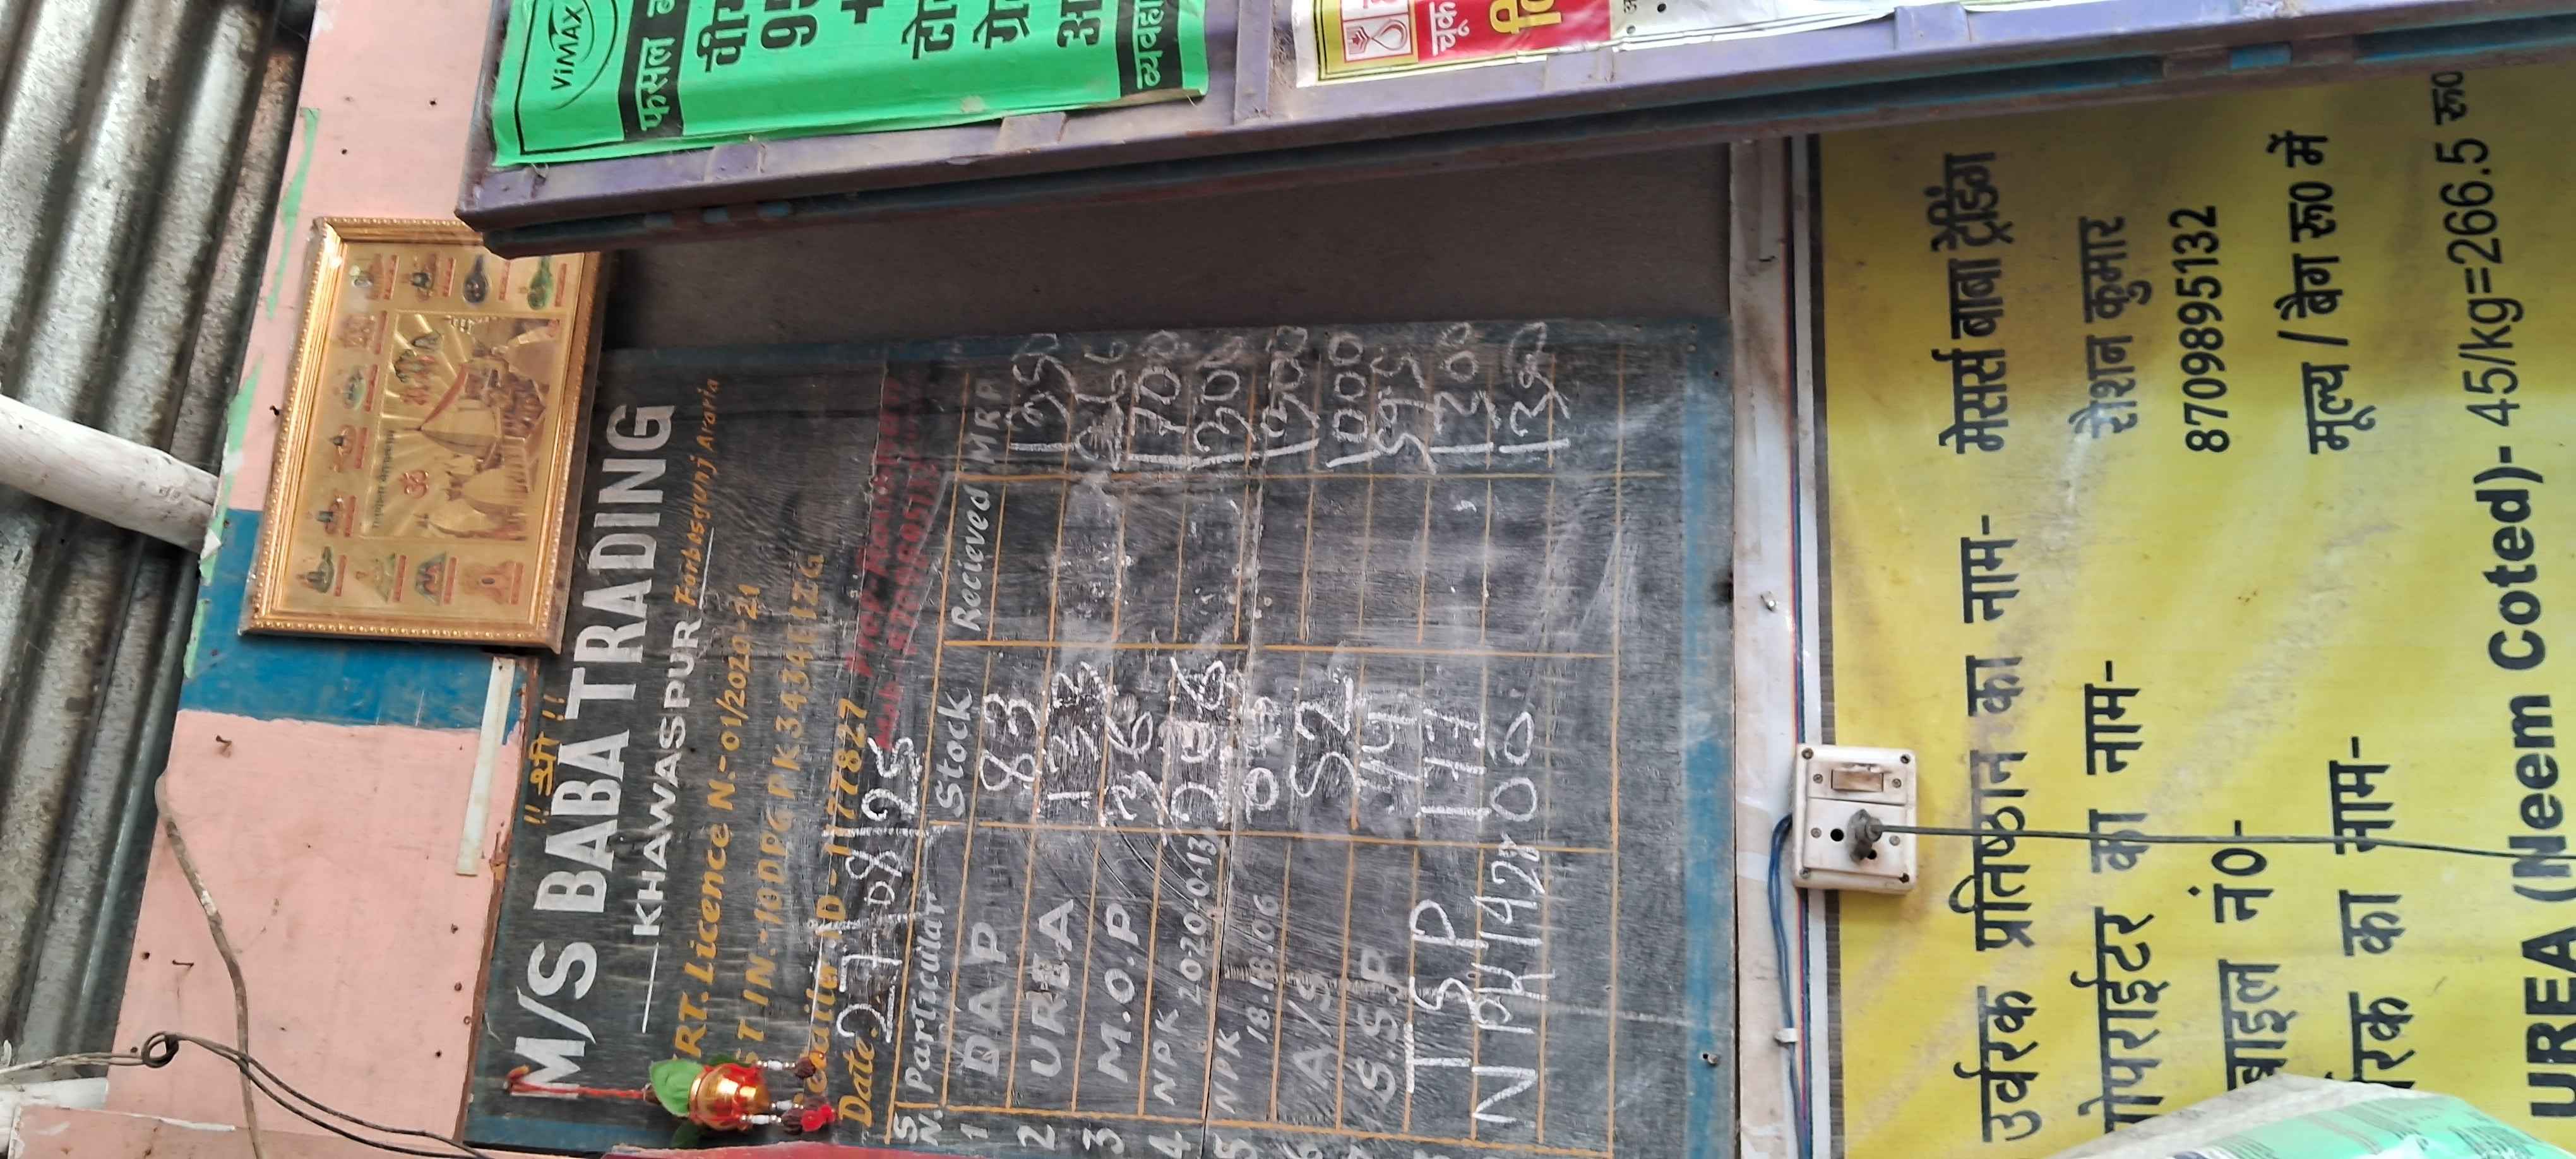 !! श्री !!
M/S BABA TRADING
KHAWASPUR Forbesganj Araria
RT. Licence N.-01/2020-21
STIN.-10DPGPK3434E1ZG
Retailer ID-1177827
Date. 27/08/25
S.N. Particular Stock Recieved MRP
1 DAP 83 1350
2 UREA 133 266
3 M.O.P 36 1700
4 NPK 2020-0-13 1300
5 NPK 18.18.06 1500
6 A/S 52 1000
S.S.P 595
TSP 117 1300
NPK 1428 00
ViMAX
फसल
व्यवहा
उर्वरक प्रतिष्ठान का नाम- मेसर्स बाबा ट्रेडिंग
ोपराईटर का नाम- रौशन कुमार
बाइल नं0- 8709895132
रक का नाम- मूल्य / बैग रू0 में
UREA (Neem Coted)- 45/kg=266.5 रू0